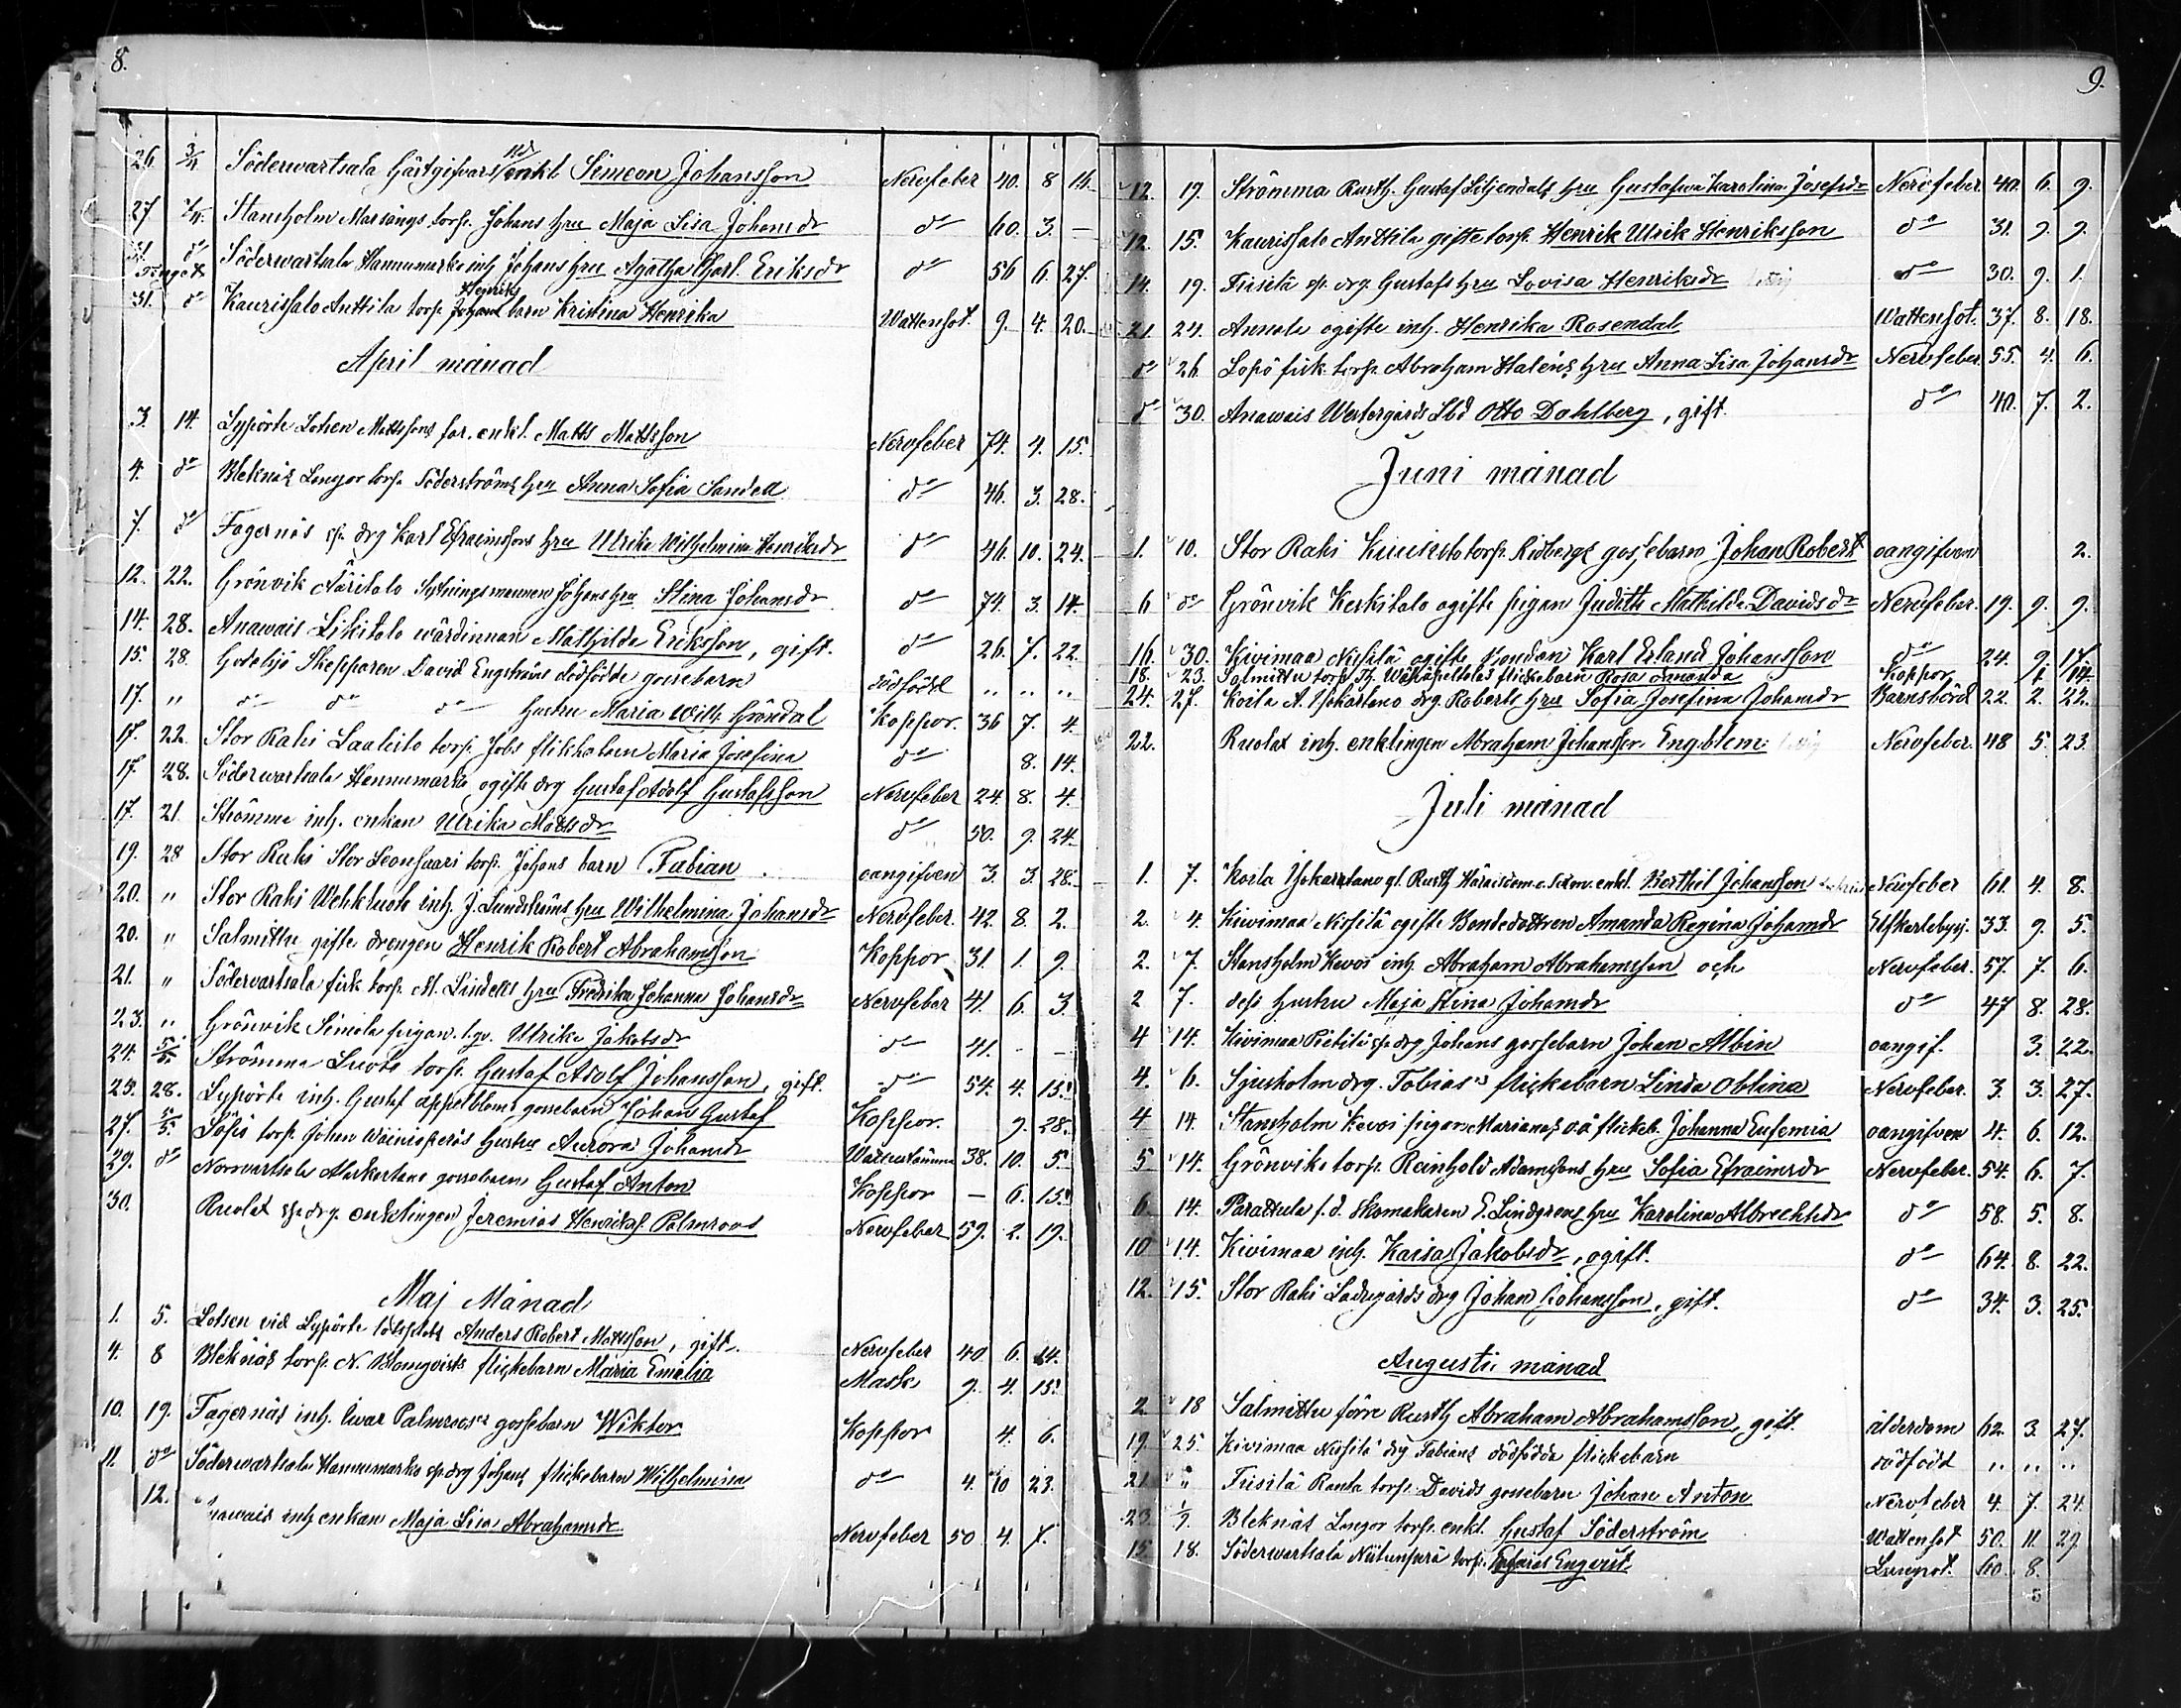 8.
26. 3/4 Söderwartsala Gästgifvars enkl. Simeon Johansson Nervfeber 40. 8. 14.
27 Stansholm Marsängs torp. Johans hru Maja Lisa Johansdr do 60. 3. —
31. do Söderwartsala Hannumarks inh Johans hru Agatha Charl. Eriksdr do 56 6. 27.
31. do Kaurissalo Anttila torp. Henriks barn Kristina Henrika Wattensot. 9. 4. 20.
April månad
3. 14. Lypörtö Lotsen Mattssons far. enkl. Matts Mattsson Nervfeber 74. 4. 15.
4. do Bleknäs Langor torp. Söderströms hru Anna Sofia Sandell do 46. 3. 28.
7. do Fagernäs sp. drg Karl Efraimssons hru Ulrika Wilhelmina Henriksdr do 46. 10. 24.
12. 22. Grönvik Ääritalo Sytningsmannen Johans hru Stina Johansdr do 74. 3. 14.
14. 28. Anawais Likitalo wärdinnan Mathilda Eriksson, gift. do 26. 7. 22.
15. 28. Skepparen David Engströms dödfödde gossebarn dödfödd „ „ „
17. „ do do do Hustru Maria Wilh. Gröndal Koppor. 36 7. 4.
17. 22. Stor Rahi Laaksto torp. Jobs flickebarn Maria Josefina do 8. 14.
17. 28. Söderwartsala Hannumarks ogifte drg Gustaf Adolf Gustafsson Nervfeber 24. 8. 4.
17. 21. Strömma inh. enkan Ulrika Mattsdr do 50. 9. 24.
19. 28 Stor Rahi Stor Leonsaari torp. Johans barn Fabian oangifven 3. 3. 28.
20. „ Stor Rahi inh. J. Lundströms hru Wilhelmina Johansdr Nervfeber. 42. 8. 2.
20. „ Salmittu gifte drengen Henrik Robert Abrahamsson Koppor 31. 1. 9.
21. „ Söderwartsala fisk. torp. M. Lindells hru Fredrika Johanna Johansdr Nervfeber 41. 6. 3.
23. „ Grönvik Simola pigan Ulrika Jakobsdr do 41. - -
24. 5/5. Strömma Luoto torp. Gustaf Adolf Johansson, gift. do 54. 4. 15.
25. 28. Lypörtö inh. Gustaf Appelbloms gossebarn Johan Gustaf Koppor. 9. 28.
27. torp. Johan hustru Aurora Johansdr 38. 10. 5.
29. do Norrwartsala gossebarn Gustaf Anton Koppor — 6. 15.
30. Ruolax sp. drg. enklingen Jeremias Henriksson Palmroos Nervfeber 59. 2. 19.
Maj Månad
1. 5. Lotsen vid Lypörtö lotsplats Anders Robert Mattsson, gift. Nervfeber 40. 6. 14.
4. 8 Bleknäs torp. N. Blomqvists flickebarn Maria Emelia Mask 9. 4. 15.
10. 19. Fagernäs inh. Iwar Palmroos's gossebarn Wiktor Koppor 4. 6.
11. do Söderwartsala Hannumarks sp. drg Johans flickebarn Wilhelmina do 4. 10 23.
12. Anawais inh enkan Maja Lisa Abrahamsdr Nervfeber 50. 4. 7.
9.
12. 19. Strömma Rusth. Gustaf Liljendals hru Gustafwa Karolina Josefsdr Nervfeber. 40. 6. 9.
12. 15. Kaurissalo Anttila gifte torp. Henrik Ulrik Henriksson do 31. 9. 9.
14. 19. Fiisilä sp. drg Gustafs hru Lovisa Henriksdr do 30. 9. 1.
21. 24. ogifte inh. Henrika Rosendal Wattensot. 37. 8. 18.
do 26. Lopö fisk. torp. Abraham Haléns hru Anna Lisa Johansdr Nervfeber. 55. 4. 6.
do 30. Anawais Westergårds Lbd Otto Dahlberg, gift. do 40. 7. 2.
Juni månad
1. 10. Stor Rahi torp. Ridbergs gossebarn Johan Robert oangifven 2.
6 do Grönvik Keskitalo ogifte pigan Judith Mathilda Davidsdr Nervfeber. 19. 9. 9.
16. 30. Kivimaa Nissilä ogifte bonden Karl Erland Johansson do 24. 9. 17.
18. 23. Salmittu torp. flickebarn Rosa Amanda Koppor 7. 14.
24. 27. Koila A. Ylikartano drg. Roberts hru Sofia Josefina Johansdr Barnsbörd 22. 2. 22.
22. Ruolax inh. enklingen Abraham Johansson Engblom Nervfeber. 48 5. 23.
Juli månad
1. 7. Koila Ylikartano gl. Rusth. Häradsdom. enkl. Berthil Johansson Nervfeber 61. 4. 8.
2. 4. Kivimaa Nissilä ogifte Bondedottren Amanda Regina Johansdr 33. 9. 5.
2. 7. Stansholm Kevoi inh. Abraham Abrahamsson och Nervfeber. 57. 7. 6.
2 7. dess hustru Maja Stina Johansdr do 47 8. 28.
4 14. Kivimaa Pietilä sp. drg Johans gossebarn Johan Albin oangif. 3. 22.
4. 6. Sjusholm drg. Tobias's flickebarn Linda Oblina Nervfeber. 3. 3. 27.
4 14. Stansholm Kevoi pigan Marianas o.ä. flickeb. Johanna Eufemia oangifven 4. 6. 12.
5 14. Grönviks torp. Reinhold Adamssons hru Sofia Efraimsdr Nervfeber. 54. 6. 7.
6. 14. Parattula f.d. Skomakaren E. Lindgrens hru Karolina Albrechtsdr do 58. 5. 8.
10. 14. Kivimaa inh. Kaisa Jakobsdr, ogift. do 64. 8. 22.
12. 15. Stor Rahi Ladugårds drg Johan Johansson, gift. do 34. 3. 25.
Augusti månad
2 18 Salmittu förre Rusth Abraham Abrahamsson, gift. ålderdom 62. 3. 27.
19. 25. Kivimaa Nissilä drg Fabians dödfödda flickebarn dödfödd „ „ „
21. „ Fiisilä Ranta torp. Davids gossebarn Johan Anton Nervfeber 4. 7. 24.
23. 1/9. Bleknäs Langor torp. enkl. Gustaf Söderström Wattensot 50. 11. 29.
15 18. Söderwartsala torp. Engvist Lungsot. 60. 8. 5